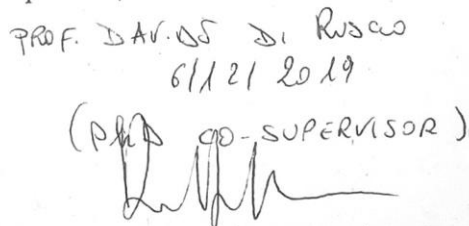 PROF. DAVIDE DI RUSCIO
6/12/2019
(PhD CO-SUPERVISOR)